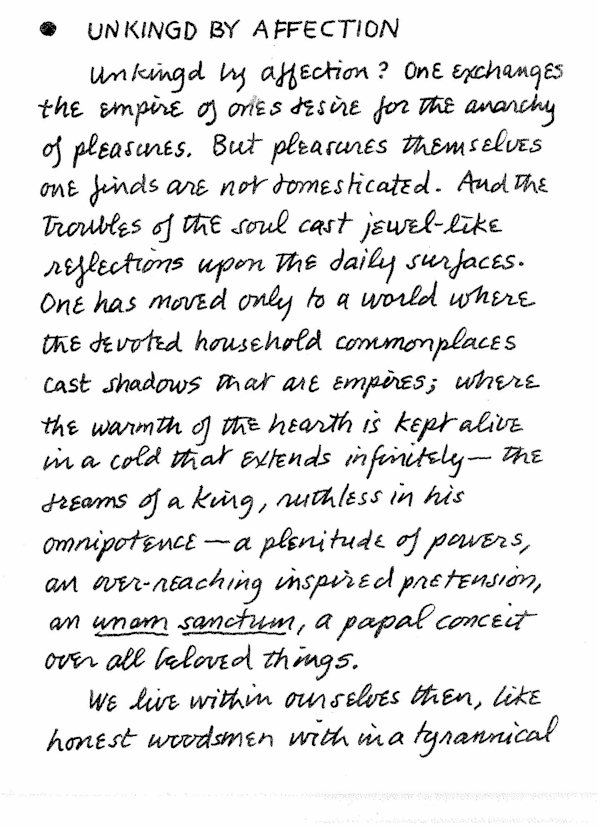 ● UNKINGD BY AFFECTION
Unkingd by affection? One exchanges
the empire of ones desire for the anarchy
of pleasures. But pleasures themselves
one finds are not domesticated. And the
troubles of the soul cast jewel-like
reflections upon the daily surfaces.
One has moved only to a world where
the devoted household commonplaces
cast shadows that are empires; where
the warmth of the hearth is kept alive
in a cold that extends infinitely — the
dreams of a king, ruthless in his
omnipotence — a plenitude of powers,
an over-reaching inspired pretension,
an unam sanctum, a papal conceit
over all beloved things.
We live within ourselves then, like
honest woodsmen within a tyrannical